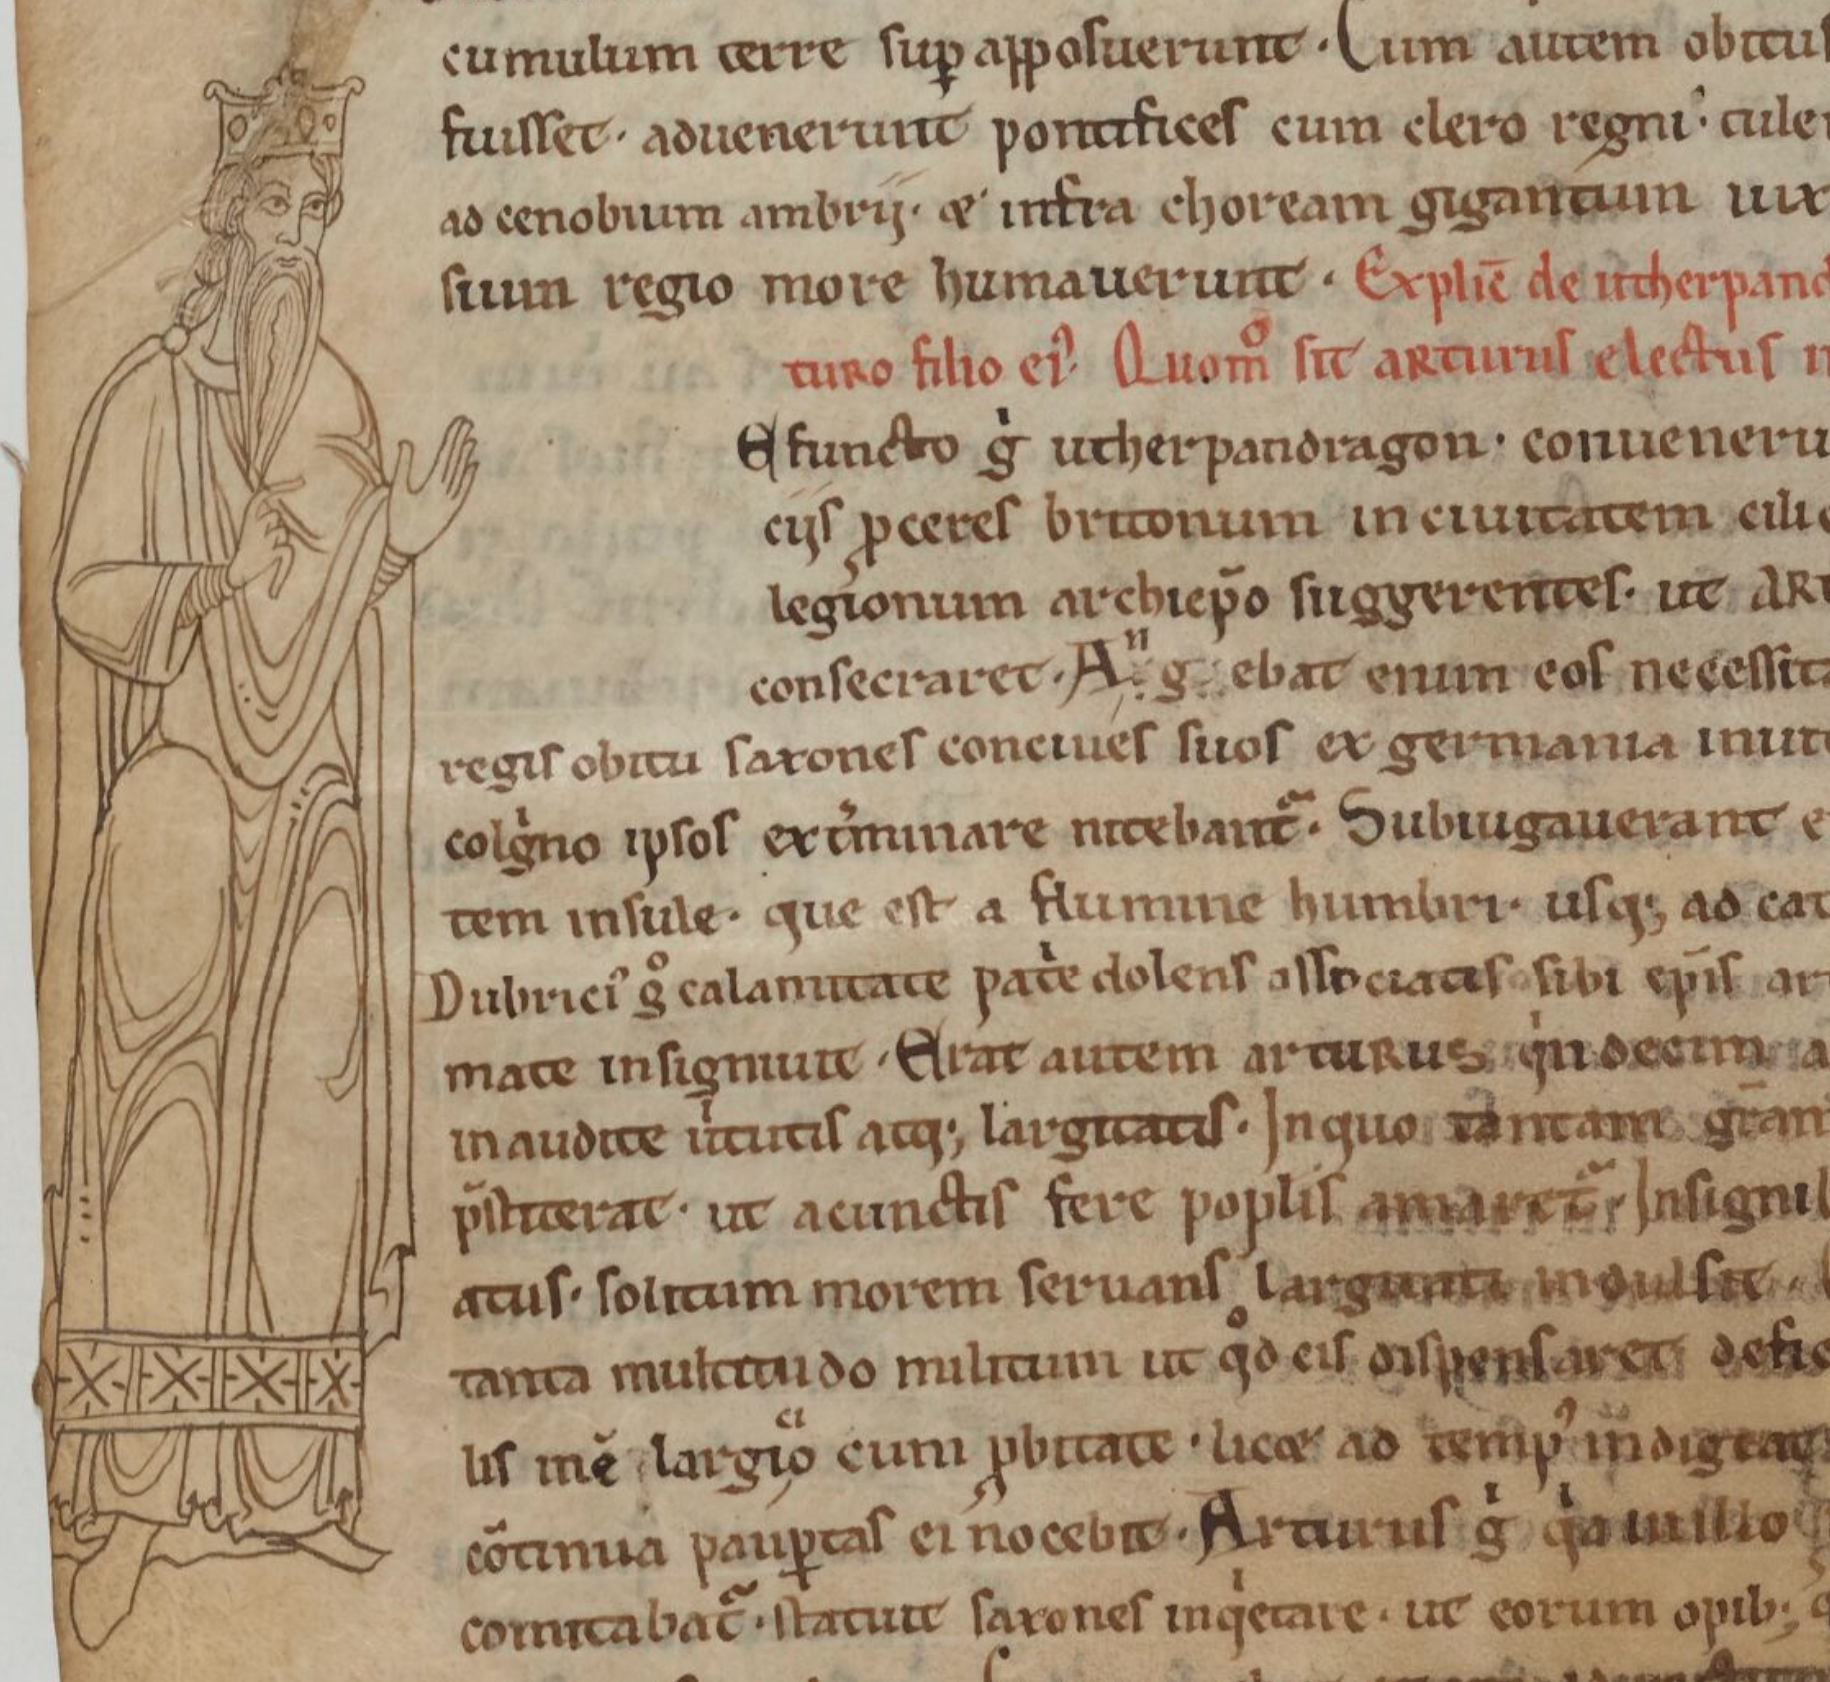 cumulum terre suꝑ apposuerunt. Cum autem obitus
fuisset. aduenerunt pontifices cum clero regni. tuler
ad cenobium ambrij. & infra choream gigantum uix
suum regio more humauerunt. Explic̄ de utherpand
turo filio ei᷒. Quom̊ sit arturus electus
Efuncto gͥ utherpandragon. conueneru
cijs ꝓceres britonum in ciuitatem cilic
legionum archiep̄o suggerentes. ut ART
consecraret. Angebat enim eos necessita
regis obitu saxones conciues suos ex germania inuit
colgͥno ipsos ext͛minare nitebant᷑. Subiugauerant e
tem insule. que est a flumine humbri. usq; ad cat
Dubrici᷒ gͦ calamitate patͥe dolens associatis sibi ep̄is ar
mate insigniuit. Erat autem arturus qͥndecim a
inaudite uͥtutis atq; largitatis. In quo tantam gr̄am
p̄stiterat. ut a cunctis fere poplis amaret᷑. Insignib
atus. solitum morem seruans largitati indulsit.
tanta multitudo militum ut qͦd eis dispensaret defic
lis inē largicͦ cum ꝓbitate. licet ad temp᷒ indigeat
cōtinua pauꝑtas ei nocebit. Arturus gͥ qͥa in illo
comitabat᷑. statuit saxones inqͥetare. ut eorum opib;